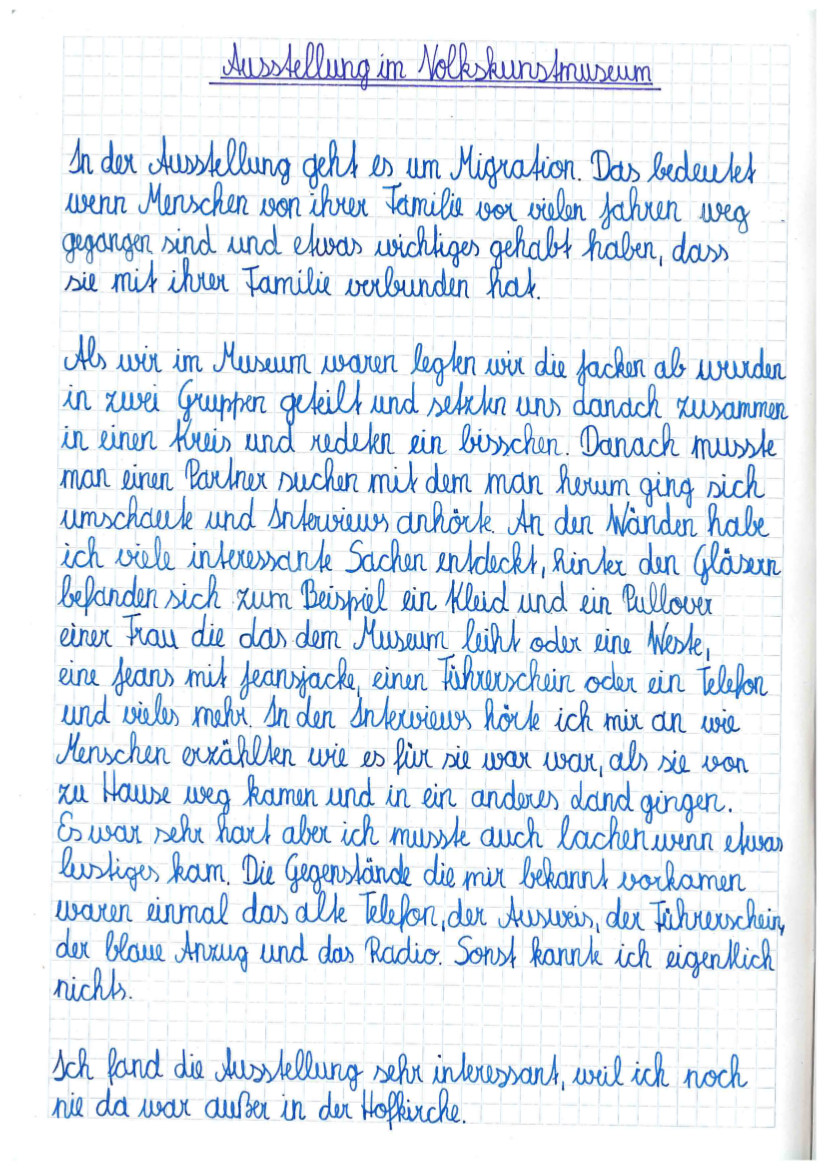 Ausstellung im Volkskunstmuseum
In der Ausstellung geht es um Migration. Das bedeutet
wenn Menschen von ihrer Familie vor vielen Jahren weg
gegangen sind und etwas wichtiges gehabt haben, dass
sie mit ihrer Familie verbunden hat.
Als wir im Museum waren legten wir die Jacken ab wurden
in zwei Gruppen geteilt und setzten uns danach zusammen
in einen Kreis und redeten ein bisschen. Danach musste
man einen Partner suchen mit dem man herum ging sich
umschaute und Interviews anhörte. An den Wänden habe
ich viele interessante Sachen entdeckt, hinter den Gläsern
befanden sich zum Beispiel ein Kleid und ein Pullover
einer Frau die das dem Museum leiht oder eine Weste,
eine Jeans mit Jeansjacke, einen Führerschein oder ein Telefon
und vieles mehr. In den Interviews hörte ich mir an wie
Menschen erzählten wie es für sie war war, als sie von
zu Hause weg kamen und in ein anderes Land gingen.
Es war sehr hart aber ich musste auch lachen wenn etwas
lustiges kam. Die Gegenstände die mir bekannt vorkamen
waren einmal das alte Telefon, der Ausweis, der Führerschein,
der blaue Anzug und das Radio. Sonst kannte ich eigentlich
nichts.
Ich fand die Ausstellung sehr interessant, weil ich noch
nie da war außer in der Hofkirche.